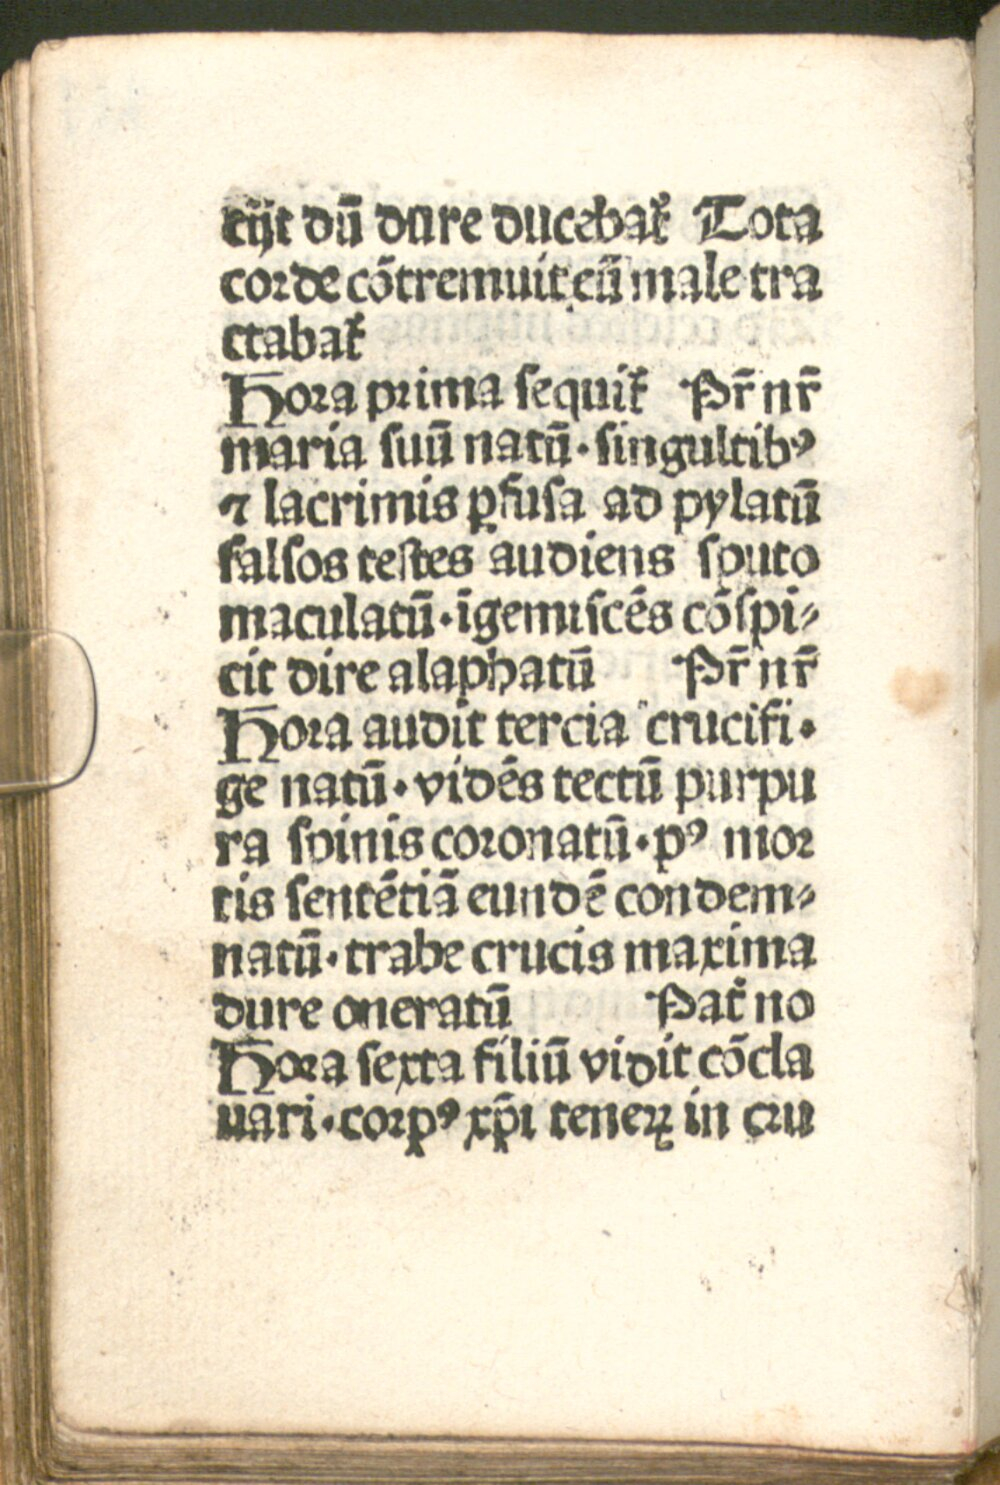 cijt dū dure ducebat᷑ Tota
corde cōtremuit eū male tra
ctabat᷑
Hora prima sequit᷑ Pr̄ nr̄
maria suū natū · singultibꝰ
⁊ lacrimis ꝑfusa ad pylatū
falsos testes audiens sputo
maculatū · īgemiscēs cōspi⸗
cit dire alaphatū Pr̄ nr̄
Hora audit tercia crucifi ·
ge natū · vidēs tectū purpu
ra spinis coronatū · pꝰ mor
tis sentētiā eundē condem⸗
natū · trabe crucis maxima
dure oneratū Pat᷑ no
Hora sexta filiū vidit cōcla
uari · corpꝰ xp̄i tenerꝝ in cru